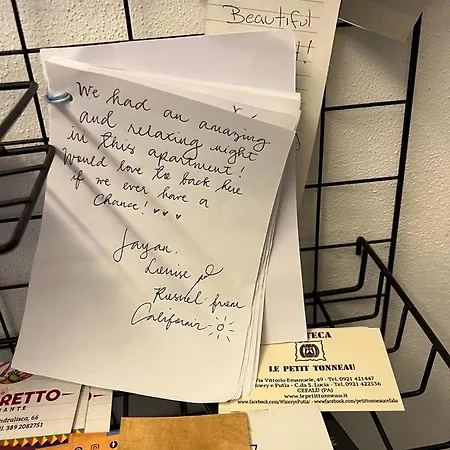 Beautiful
We had an amazing
and relaxing night
in this apartment!
Would love to back here
if we ever have a
Chance! ♥♥♥
Jayan,
Lenise
from
California
LE PETIT TONNEAU
Via Vittorio Emanuele, 49 - Tel. 0921 421447
Winery e Putia - C.da S. Lucia - Tel. 0921 422536
CEFALÙ (PA)
www.lepetittonneau.it
www.facebook.com/WineryePutia/ - www.facebook.com/petittonneaucefalu
RETTO
RANTE
andralisca, 66
389 2082751